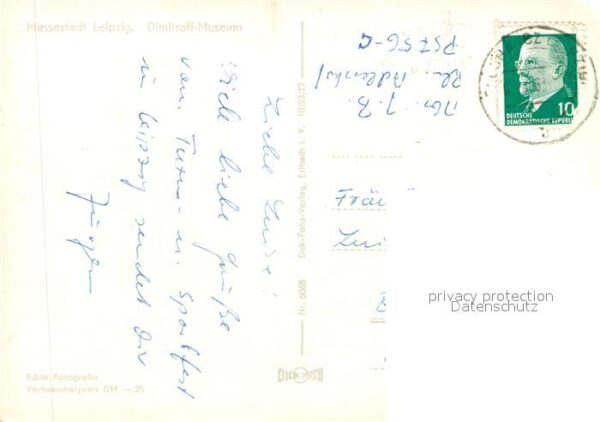 Messestadt Leipzig. Dimitroff-Museum
Liebe Luise!
Viele liebe Grüße
vom Turn- u. Sportfest
in Leipzig sendet Dir
Jürgen
Echte Fotografie
Verbraucherpreis DM —.25
Nr. 6055 Dick-Foto-Verlag, Erlbach i. V. III/23/27
DICK
FOTO
DEUTSCHE
DEMOKRATISCHE REPUBLIK
10
Fräu
Lui
privacy protection
Datenschutz